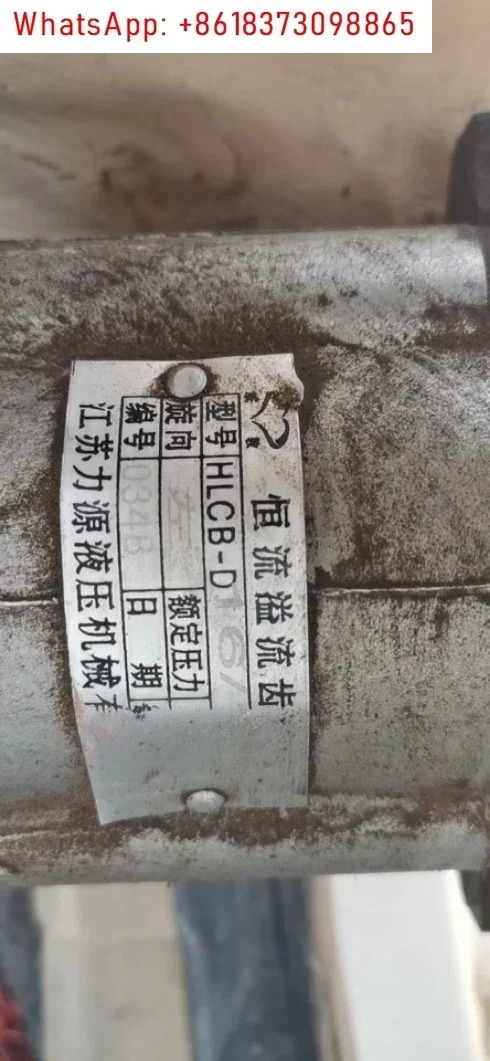 WhatsApp: +8618373098865
恒流溢流齿
型号 HLCB-D16/
旋向 左 额定压力
编号 0348 日期
江苏力源液压机械有